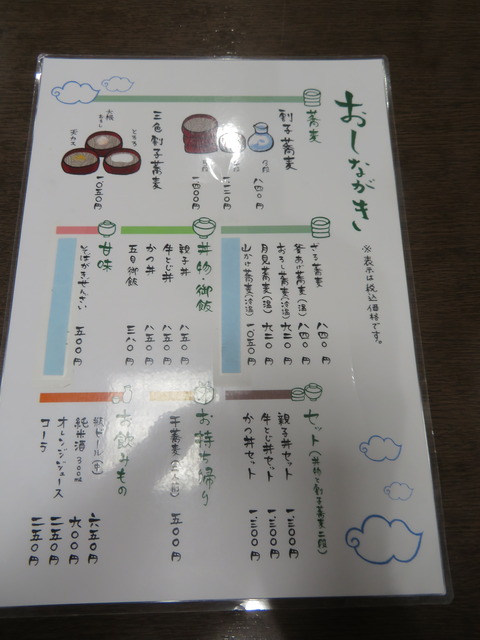 おしながき
※表示は税込価格です。
蕎麦
割子蕎麦
二段 八四〇円
一四〇〇円
三色割子蕎麦
とろろ
大根おろし
天カス
一〇五〇円
ざる蕎麦 八四〇円
釜あげ蕎麦(温) 八四〇円
おろし蕎麦(冷温)
月見蕎麦(温)
山かけ蕎麦(冷温) 一〇五〇円
丼物・御飯
親子丼 八五〇円
牛とじ丼 八五〇円
かつ丼 八五〇円
五目御飯 三八〇円
甘味
そばがきぜんざい 五〇〇円
セット(丼物と割子蕎麦二段)
親子丼セット 一、三〇〇円
牛とじ丼セット 一、三〇〇円
かつ丼セット 一、三〇〇円
お持ち帰り
干蕎麦 五〇〇円
お飲みもの
瓶ビール(中) 六五〇円
純米酒 300ml 六〇〇円
オレンジジュース 二五〇円
コーラ 二五〇円